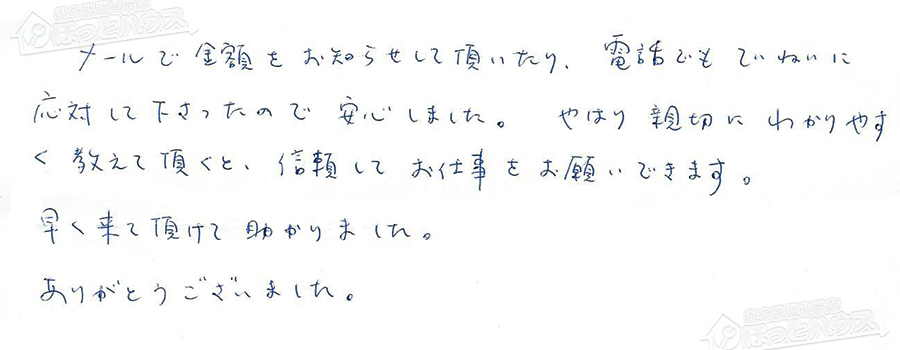 住宅設備専門店
ほっとハウス
メールで金額をお知らせして頂いたり、電話でもていねいに
応対して下さったので安心しました。 やはり親切にわかりやす
く教えて頂くと、信頼してお仕事をお願いできます。
早く来て頂けて助かりました。
ありがとうございました。
住宅設備専門店
ほっとハウス